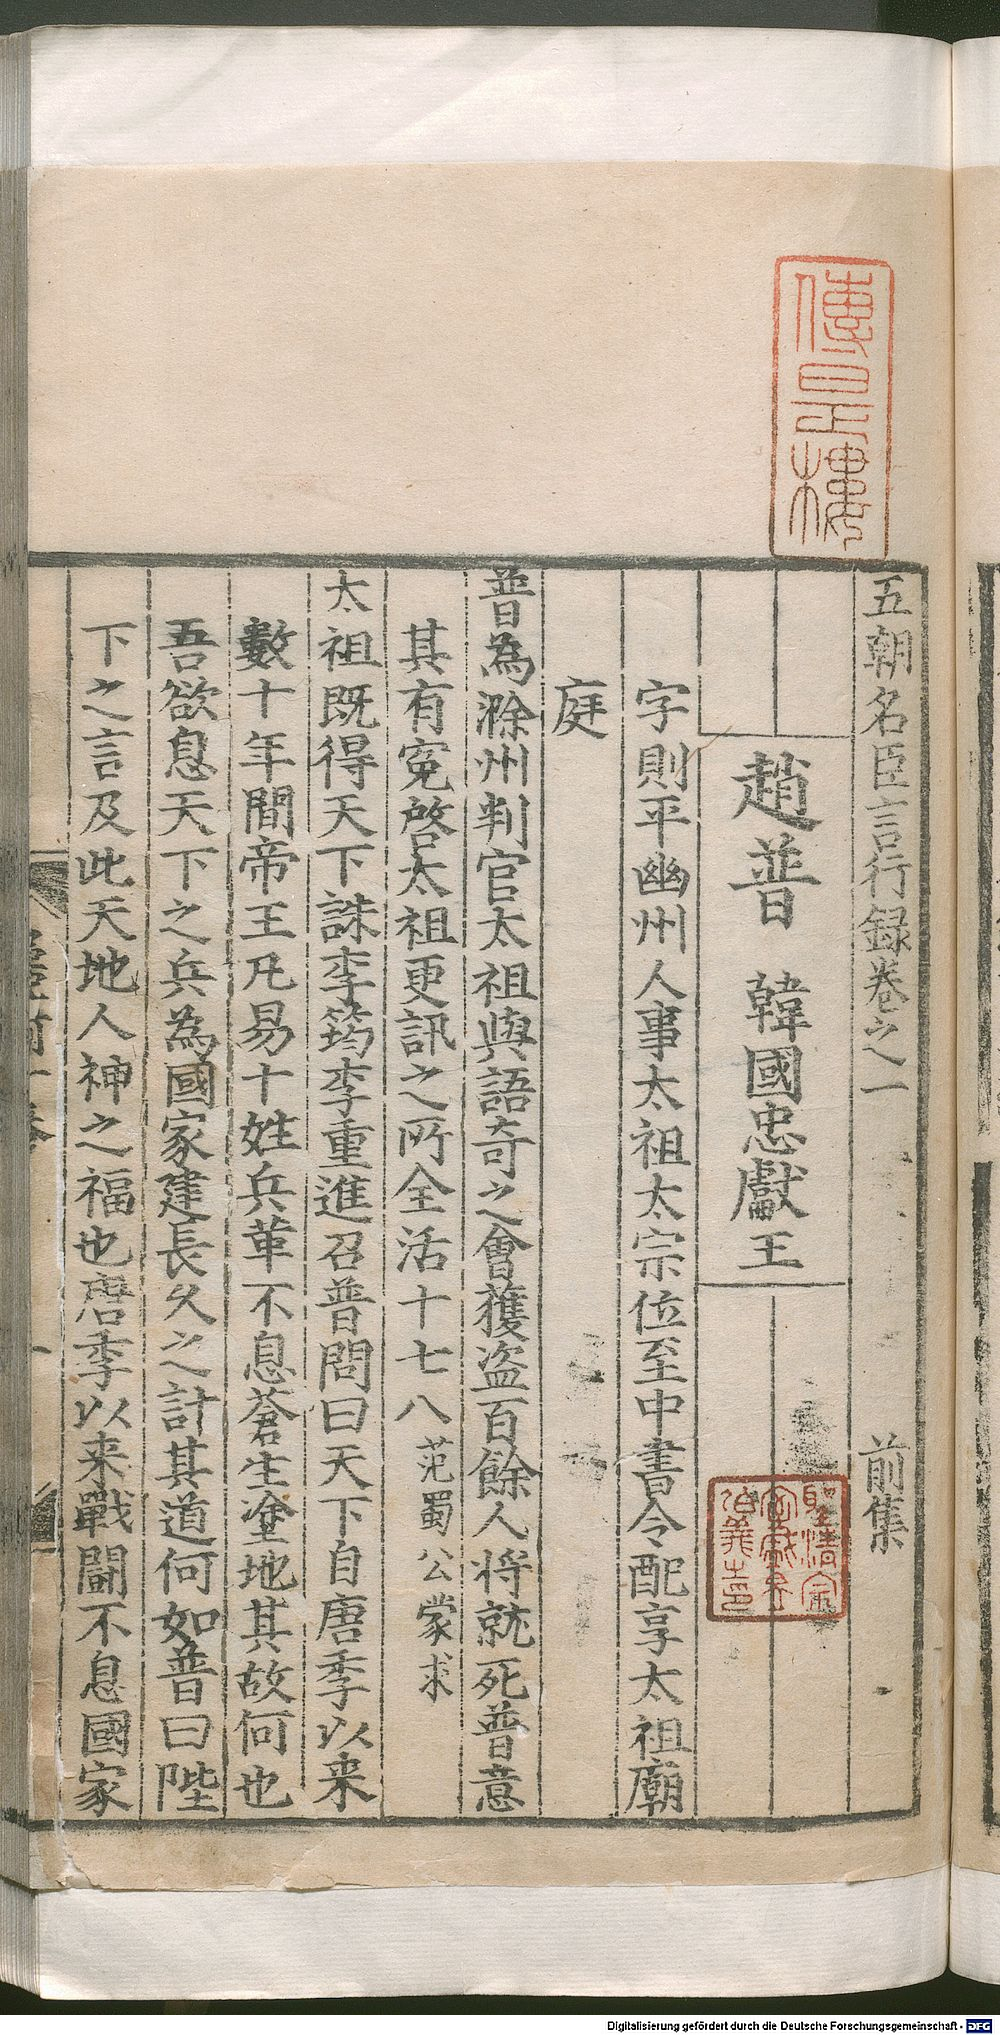 五朝名臣言行録卷之一 前集
趙普 韓國忠獻王
字則平幽州人事太祖太宗位至中書令配享太祖廟
庭
普為滁州判官太祖與語奇之會獲盗百餘人将就死普意
其有寃啓太祖更訊之所全活十七八 范蜀公蒙求
太祖既得天下誅李筠李重進召普問曰天下自唐季以来
數十年間帝王凡易十姓兵革不息蒼生塗地其故何也
吾欲息天下之兵為國家建長久之計其道何如普曰陛
下之言及此天地人神之福也唐季以来戰鬪不息國家
樓
Digitalisierung gefördert durch die Deutsche Forschungsgemeinschaft - DFG